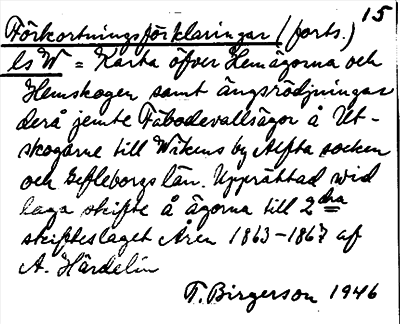 15
Förkortningsförklaringar (forts.)
ls W = Karta öfver Hemägorna och
Hemskogen samt ängsrödjningar
derå jemte Fäbodevallsägor å Ut-
skogarne till Wikens by Alfta socken
och Gefleborgs län. Upprättad wid
laga skifte å ägorna till 2dra
skifteslaget Åren 1863-1867 af
A. Härdelin
T. Birgerson 1946